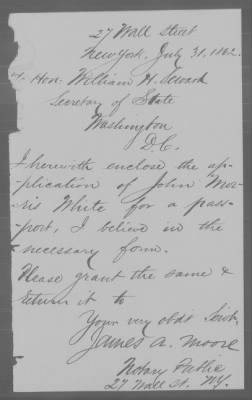 27 Wall Street
New York. July 31. 1862.
Hon: William H. Seward
Secretary of State
Washington
D.C.
I herewith enclose the ap-
plication of John Mor-
ris White for a pass-
port, I believe in the
necessary form.
Please grant the same &
return it to
Your very obdt Servt.
James A. Moore
Notary Public
27 Wall St. NY.